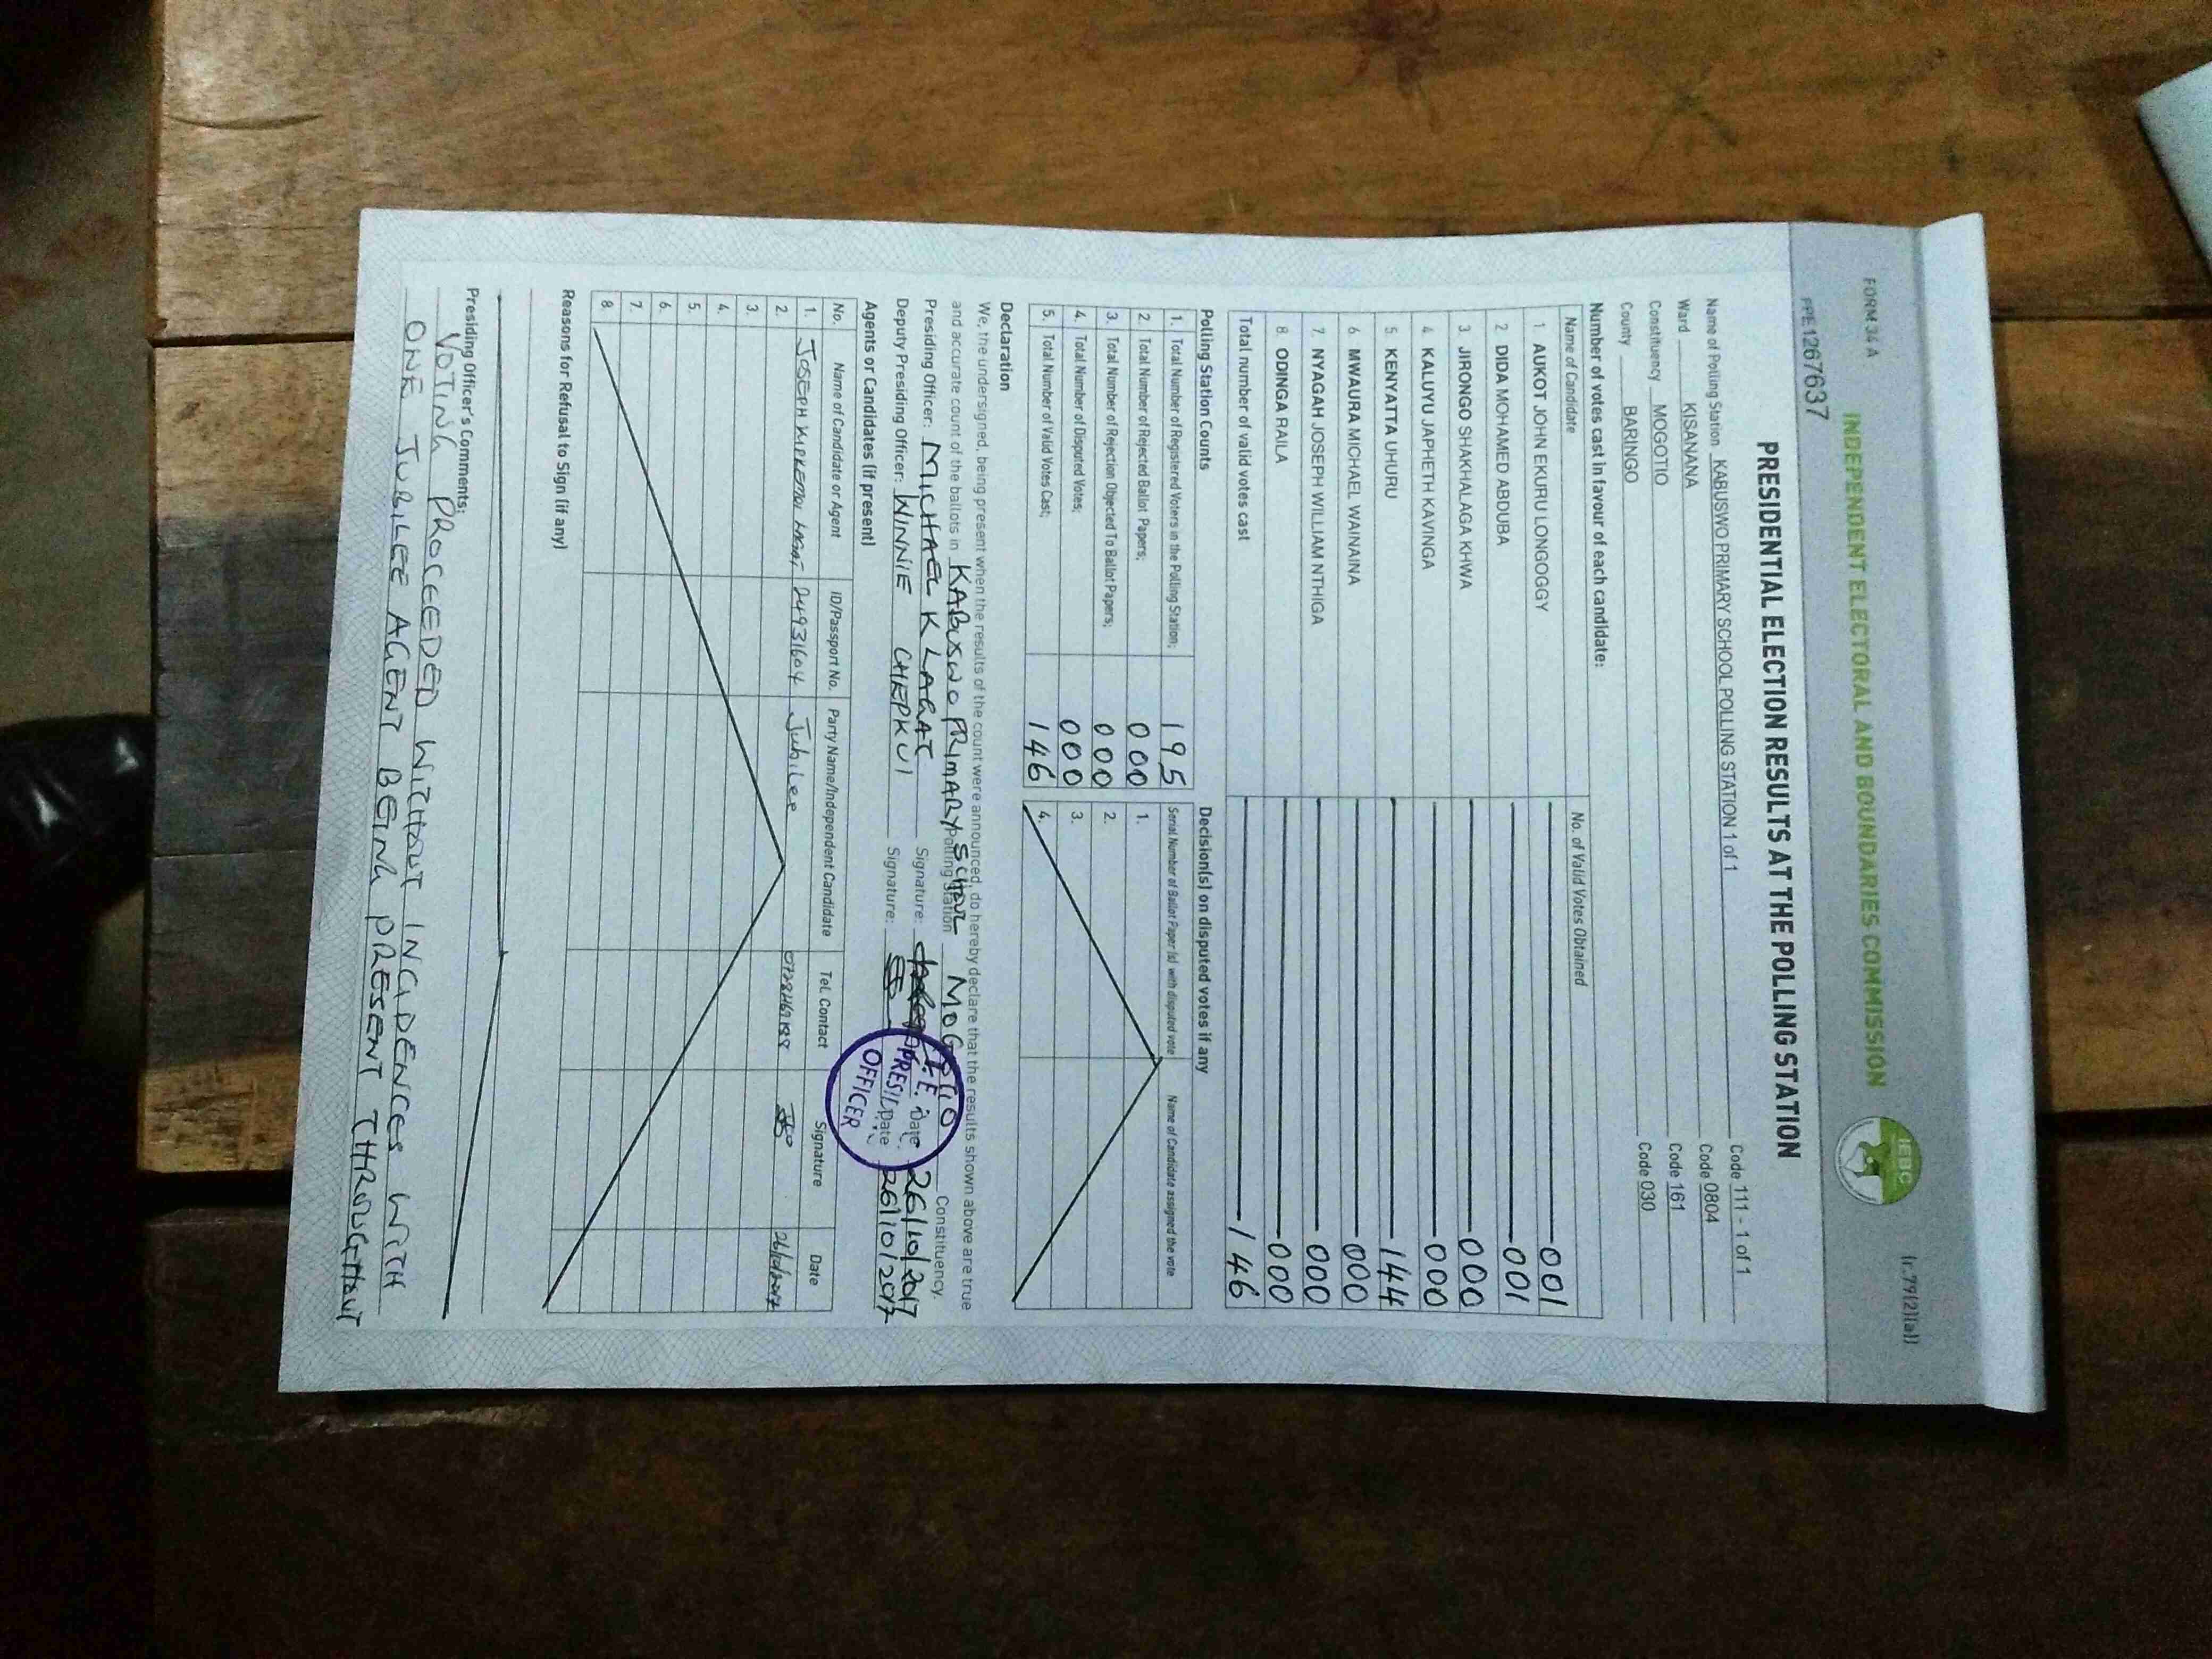 FORM 34 A
INDEPENDENT ELECTORAL AND BOUNDARIES COMMISSION
IEBC
(r.79(2)(a))
PPE1267637
PRESIDENTIAL ELECTION RESULTS AT THE POLLING STATION
Name of Polling Station KABUSWO PRIMARY SCHOOL POLLING STATION 1 of 1 Code 111 - 1 of 1
Ward KISANANA Code 0804
Constituency MOGOTIO Code 161
County BARINGO Code 030
Number of votes cast in favour of each candidate:
Name of Candidate No. of Valid Votes Obtained
1 AUKOT JOHN EKURU LONGOGGY 001
2 DIDA MOHAMED ABDUBA 001
3 JIRONGO SHAKHALAGA KHWA 000
4 KALUYU JAPHETH KAVINGA 000
5 KENYATTA UHURU 144
6 MWAURA MICHAEL WAINAINA 000
7. NYAGAH JOSEPH WILLIAM NTHIGA 000
8. ODINGA RAILA 000
Total number of valid votes cast 146
Polling Station Counts Decision(s) on disputed votes if any
1. Total Number of Registered Voters in the Polling Station; 195 Serial Number of Ballot Paper (s) with disputed vote Name of Candidate assigned the vote
2. Total Number of Rejected Ballot Papers; 000 1.
3. Total Number of Rejection Objected To Ballot Papers; 000 2.
4. Total Number of Disputed Votes; 000 3.
5. Total Number of Valid Votes Cast; 146 4.
Declaration
We, the undersigned, being present when the results of the count were announced, do hereby declare that the results shown above are true
and accurate count of the ballots in KABUSWO PRIMARY SCHOOL polling station MOGOTIO Constituency.
Presiding Officer: MICHAEL K LAGAT Signature: Date 26/10/2017
Deputy Presiding Officer: WINNIE CHEPKUI Signature: Date 26/10/2017
OFFICER
Agents or Candidates (if present)
No. Name of Candidate or Agent ID/Passport No. Party Name/Independent Candidate Tel. Contact Signature Date
1. JOSEPH KIPKEMOI LAGAT 24931604 Jubilee 26/10/2017
2.
3.
4.
5.
6.
7.
8.
Reasons for Refusal to Sign (if any)
Presiding Officer's Comments;
VOTING PROCEEDED WITHOUT INCIDENCES WITH
ONE JUBILEE AGENT BEING PRESENT THROUGHOUT